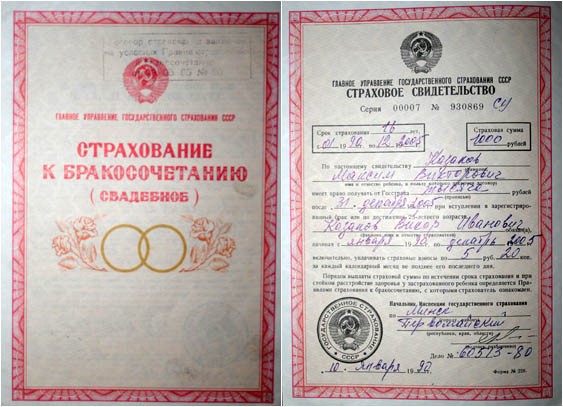 на условия
СТРАХОВАНИЕ
ГЛАВНОЕ УПРАВЛЕНИЕ ГОСУДАРСТВЕННОГО СТРАХОВАНИЯ СССР
СТРАХОВАНИЕ
К БРАКОСОЧЕТАНИЮ
(СВАДЕБНОЕ)
ГЛАВНОЕ УПРАВЛЕНИЕ ГОСУДАРСТВЕННОГО СТРАХОВАНИЯ СССР
СТРАХОВОЕ СВИДЕТЕЛЬСТВО
Серия 00007 № 930869 СУ
Срок страхования 16 лет,
с 01 1990 по 12.2005
Страховая сумма
1000 рублей
По настоящему свидетельству Козаков
Максим Викторович
имя и отчество ребенка, в пользу которого
имеет право получить от Госстраха тысяча
(прописью)
после 31. декабря 2005 при вступлении в зарегистриро-
ванный брак или по достижении 25-летнего возраста.
Козаков Виктор Иванович
(фамилия, имя и отчество страхователя) обязан(а),
начиная с января 1990 по декабрь 2005
включительно, уплачивать страховые взносы по 5 руб. 20 коп.
за каждый календарный месяц не позднее его последнего дня.
Порядок выплаты страховой суммы по истечении срока страхования и при
стойком расстройстве здоровья у застрахованного ребенка определяется Пра-
вилами страхования к бракосочетанию, с которыми страхователь ознакомлен.
Начальник Инспекции государственного страхования
по Минск
Первомайский
(республика, край, область)
ГОСУДАРСТВЕННОЕ СТРАХОВАНИЕ
СССР
Дело № 60513-80
10 января 1990
Форма №